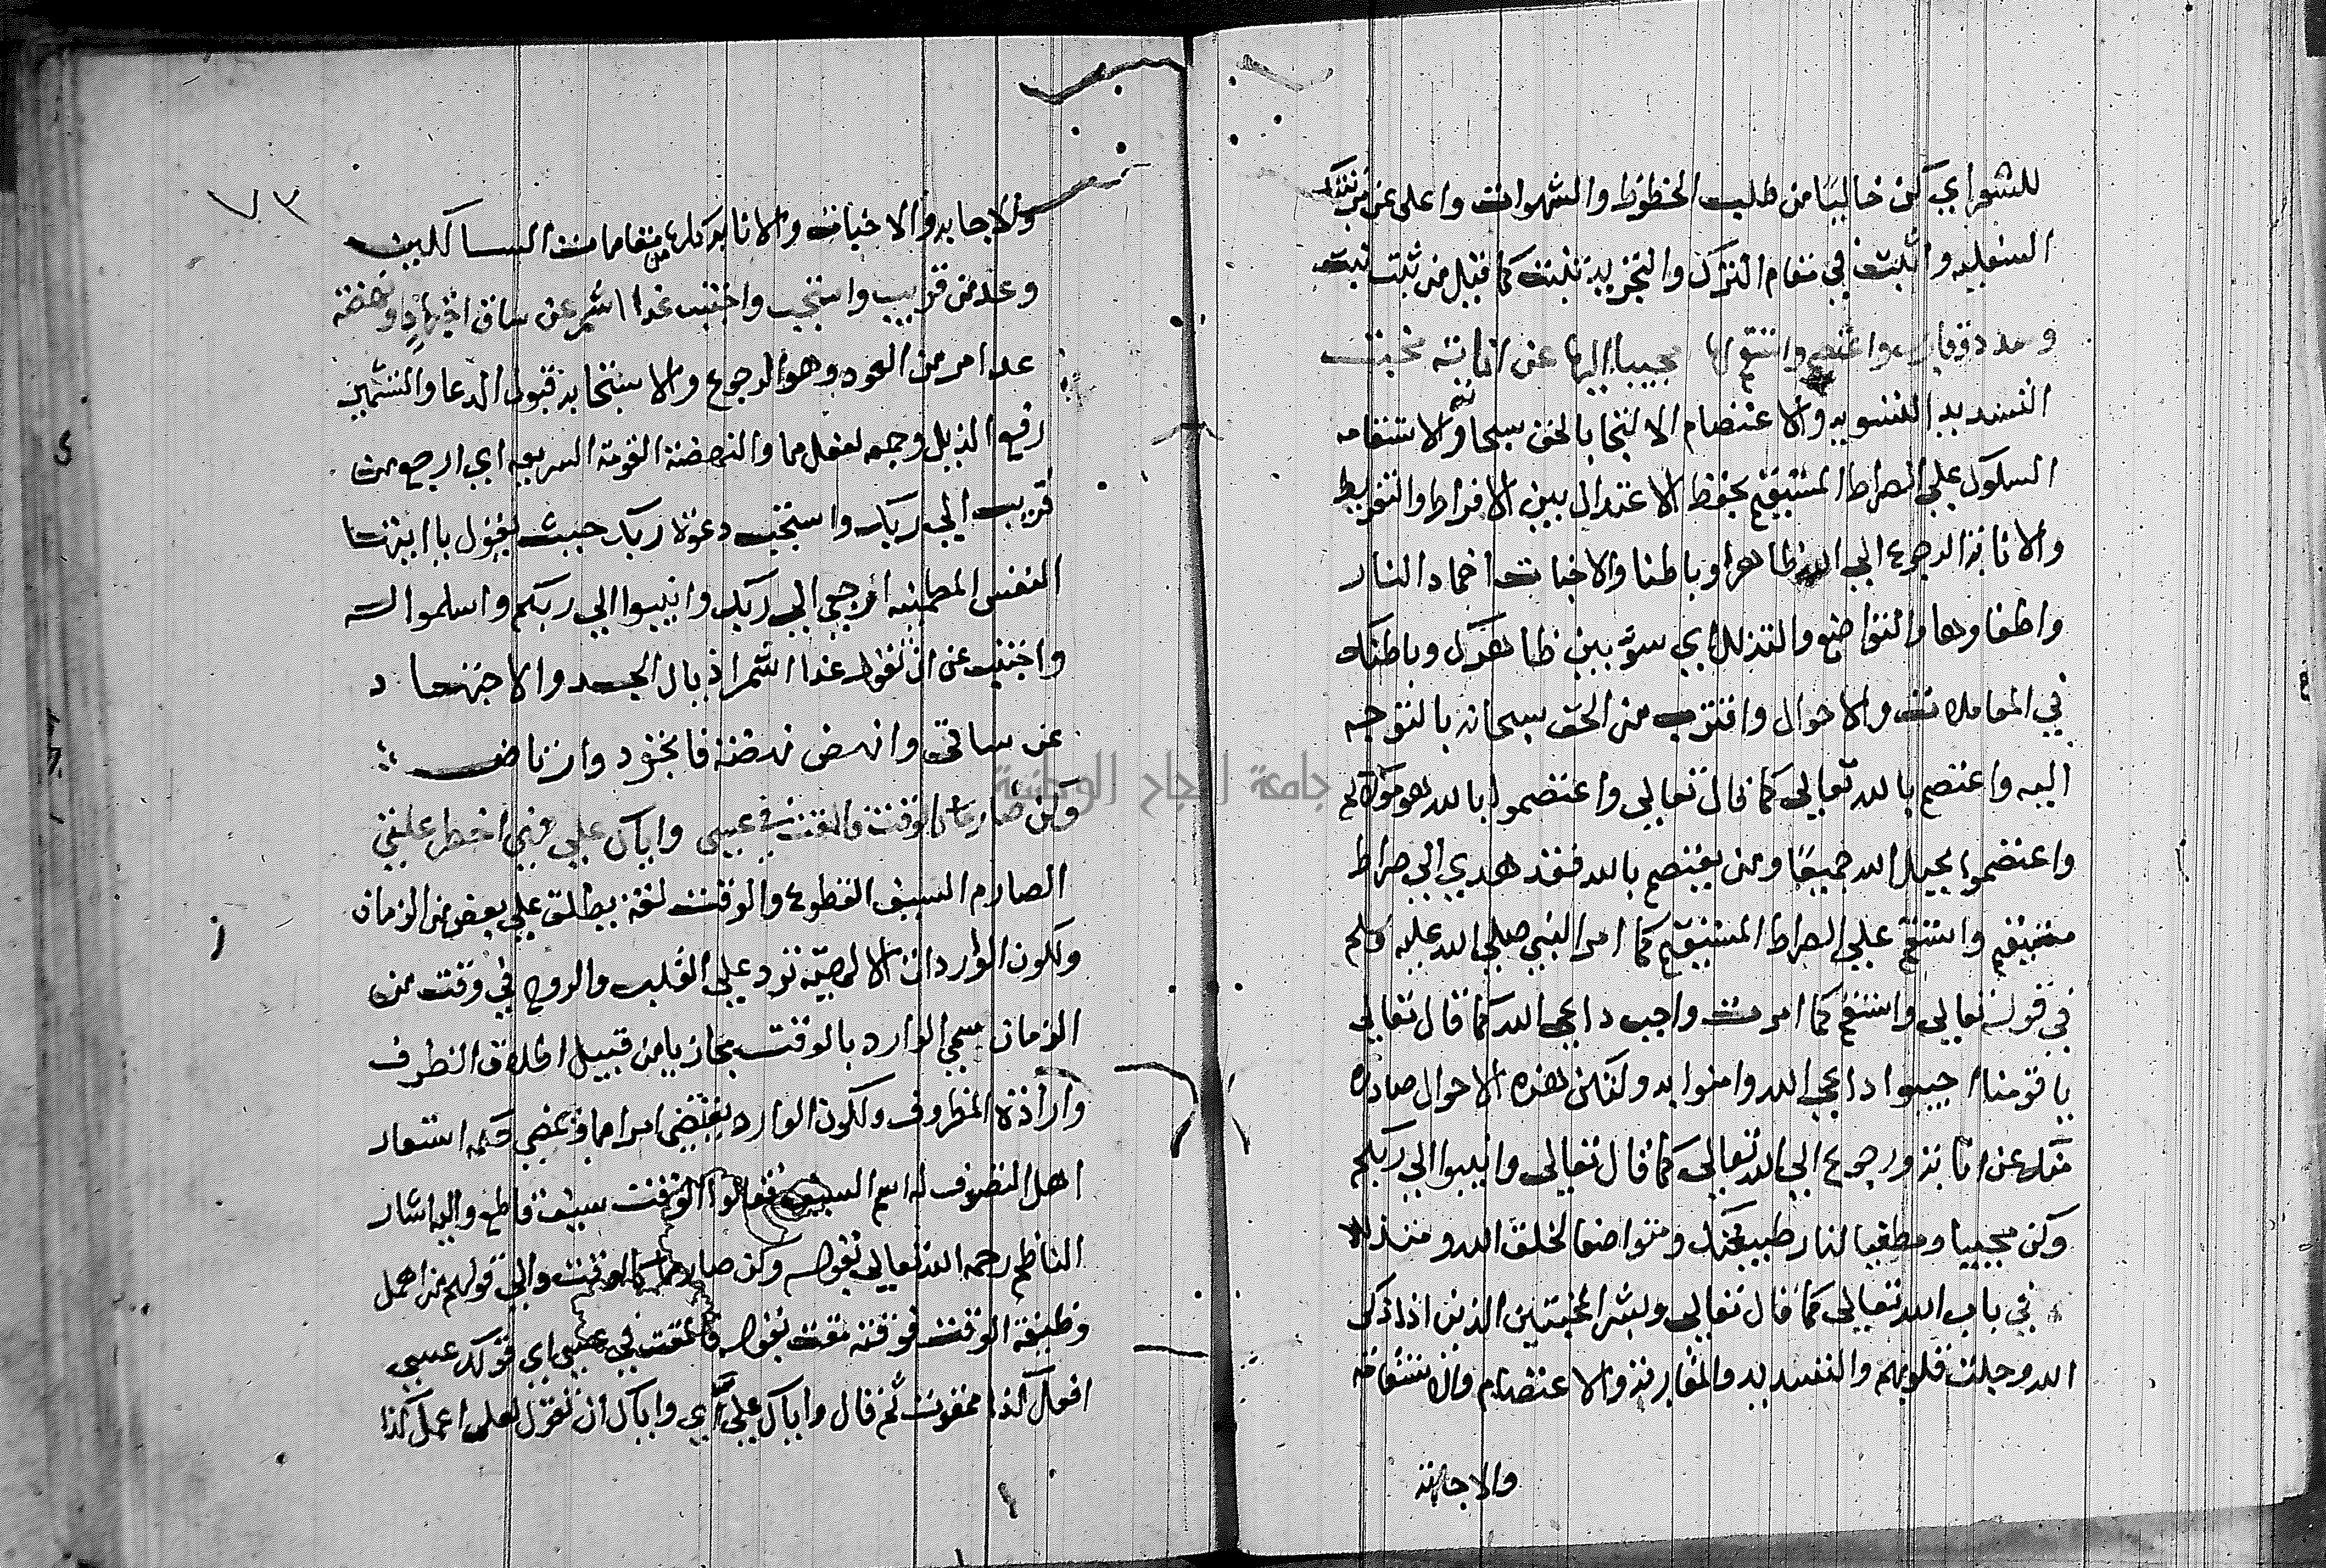 للشعراي كن خاليا من طلب الحظوظ والشهوات واعلى عن
السفليه واثبت في مقام الترك والتجريد تثبت كما قيل من ثبت نبت
وسدد وقارب واعتصم واستقم لها مجيبا اليها عن انابة مخبت
التسديد التسويه والاعتصام الالتجا بالحق سبحا والاستقامه
السلوك علي الصراط المستقيم بحفظ الاعتدال بين الافراط والتفريط
والانابة الرجوع الي الله ظاهرا وباطنا والاخبات اخماد النار
واطفاوها والتواضع والتذلل اي سوّ بين ظاهرك وباطنك
في المعاملات والاحوال واقترب من الحق سبحانه بالتوجه
اليه واعتصم بالله تعالي كما قال تعالي واعتصموا بالله هو مولاكم
واعتصموا بحبل الله جميعا ومن يعتصم بالله فقد هدي الي صراط
مستقيم واستقم علي الصراط المستقيم كما امر النبي صلي الله عليه وسلم
في قوله تعالي واستقم كما امرت واجب داعي الله كما قال تعالي
يا قومنا اجيبوا داعي الله وامنوا به ولتكن هذه الاحوال صادرة
منك عن انابة ورجوع الي الله تعالي كما قال تعالي وانيبوا الي ربكم
وكن مجيبا ومطفيا لنار طبيعتك ومتواضعا لخلق الله ومتذللا
في باب الله تعالي كما قال تعالي وبشر المخبتين الذين اذا ذكر
الله وجلت قلوبهم والتسديد والمقاربة والاعتصام والاستقامة
والاجابة
٧٣
والاجابه والاخبات والانابه كلها من مقامات السالكين
وعد من قريب واستجب واجتنب غدا اشمر عن ساق اجتهاد ونهضة
عد امر من العود وهو الرجوع والاستجابه قبول الدعا والتشمير
رفع الذيل وجمعه لفعل ما والنهضة القومة السريعه اي ارجع من
قريب الي ربك واستجب دعوة ربك حيث يقول يا ايتها
النفس المطمئنه ارجعي الي ربك وانيبوا الي ربكم واسلموا له
واجتنب عن ان تقول غدا اشمر اذيال الجد والاجتهاد
عن ساقي وانهض نهضة فا وارتاض
وكن صارما كالوقت فالمقت في عسي واياك علي فهي اخطر علتي
الصارم السيف القطوع والوقت لغة يطلق علي بعض من الزمان
ولكون الواردات الالهيّه ترد علي القلب والروح في وقت من
الزمان سمي الوارد بالوقت مجازيا من قبيل اطلاق الظرف
وارادة المظروف ولكون الوارد يقتضي امرا ما ويمضي حكمه استعار
اهل التصوف له اسم السيف فقالوا الوقت سيف قاطع واليه اشار
الناظم رحمه الله تعالي بقوله وكن صارما كالوقت والي قولهم من اهمل
وظيفة الوقت فوقته مقت بقوله فالمقت في عسي اي قولك عسي
افعل كذا ممقوت ثم قال واياك علي اي واياك ان تقول لعلي اعمل كذا
جامعة النجاح الوطنية